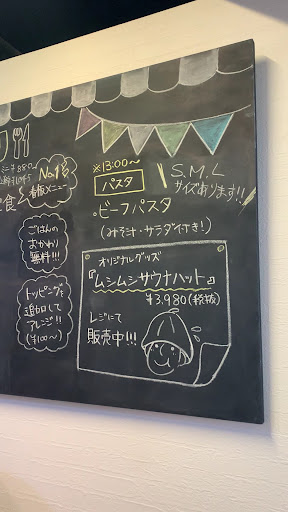 No.1!!
看板メニュー
ごはんの
おかわり
無料!!!
トッピングを
追加して
アレンジ!!
(¥100〜)
※13:00〜
パスタ
S.M.L
サイズあります!!
・ビーフパスタ
(みそ汁・サラダ付き!)
オリジナルグッズ
『ムシムシサウナハット』
¥3,980(税抜)
レジにて
販売中!!!